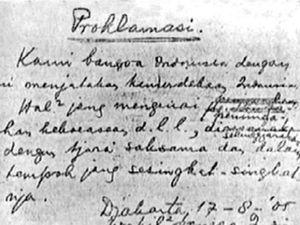 Proklamasi.
Kami bangsa Indonesia dengan
ni menjatakan kemerdekaan Indonesia.
Hal² jang mengenai
kan kekoeasaan d.l.l., diselenggarakan
dengan tjara saksama dan dalam
tempoh jang sesingkat-singkat
nja.
Djakarta, 17-8-'05